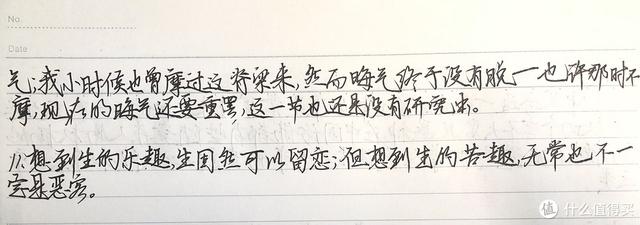 No.
Date
气;我小时候也曾摩过这脊梁来,然而晦气终于没有脱—也许那时不
摩,现在的晦气还要重罢,这一节也还是没有研究出。
11.想到生的乐趣,生固然可以留恋;但想到生的苦趣,无常也不一
定是恶客。
值 什么值得买